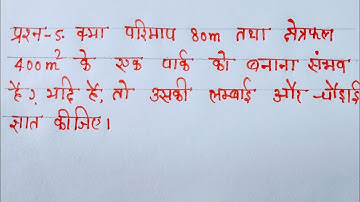 प्रश्न-5. क्या परिमाप 80m तथा क्षेत्रफल
400m² के एक पार्क को बनाना संभव
है? यदि है, तो उसकी लम्बाई और चौड़ाई
ज्ञात कीजिए।